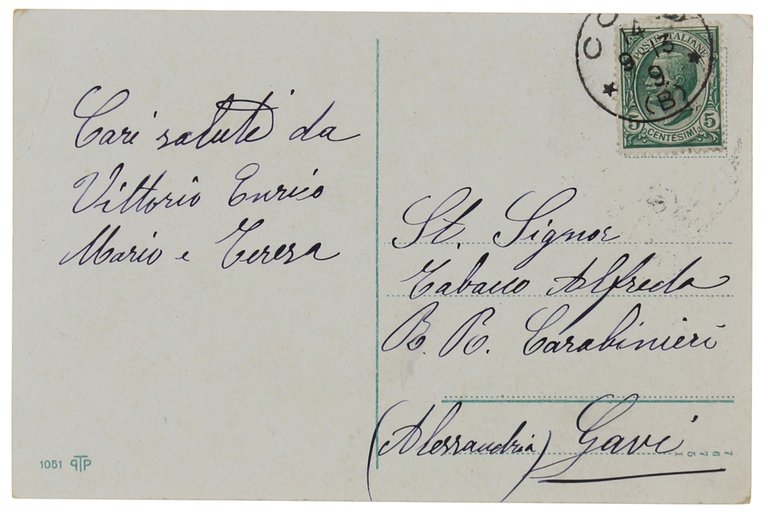 Cari saluti da
Vittorio Enrico
Mario e Teresa
St. Signor
Tabano Alfredo
R. R. Carabinieri
(Alessandria) Gavi
POSTE ITALIANE
5 CENTESIMI 5
14
9 13
9
(B)
1051